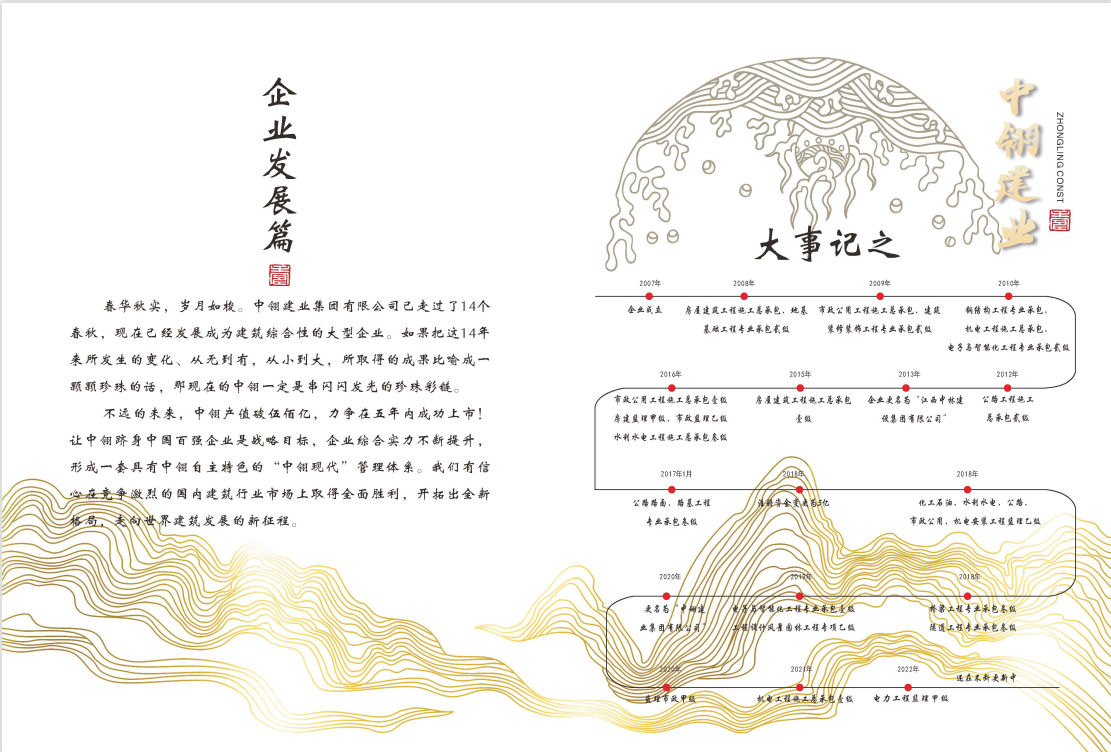 企业发展篇
春华秋实，岁月如梭。中翎建业集团有限公司已走过了14个
春秋，现在已经发展成为建筑综合性的大型企业。如果把这14年
来所发生的变化、从无到有，从小到大，所取得的成果比喻成一
颗颗珍珠的话，那现在的中翎一定是串闪闪发光的珍珠彩链。
不远的未来，中翎产值破伍佰亿，力争在五年内成功上市！
让中翎跻身中国百强企业是战略目标，企业综合实力不断提升，
形成一套具有中翎自主特色的“中翎现代”管理体系。我们有信
心在竞争激烈的国内建筑行业市场上取得全面胜利，开拓出全新
格局，走向世界建筑发展的新征程。
中翎建业
ZHONGLING CONST
大事记之
2007年
企业成立
2008年
房屋建筑工程施工总承包、地基
基础工程专业承包贰级
2009年
市政公用工程施工总承包、建筑
装修装饰工程专业承包贰级
2010年
钢结构工程专业承包、
机电工程施工总承包、
电子与智能化工程专业承包贰级
2012年
公路工程施工
总承包贰级
2013年
企业更名为“江西中林建
设集团有限公司”
2015年
房屋建筑工程施工总承包
壹级
2016年
市政公用工程施工总承包壹级
房建监理甲级、市政监理乙级
水利水电工程施工总承包叁级
2017年1月
公路路面、路基工程
专业承包叁级
2018年
注册资金变更为5亿
2018年
化工石油、水利水电、公路、
市政公用、机电安装工程监理乙级
2018年
桥梁工程专业承包叁级
隧道工程专业承包叁级
2019年
电子与智能化工程专业承包壹级
工程设计风景园林工程专项乙级
2020年
更名为“中翎建
业集团有限公司”
2020年
监理市政甲级
2021年
机电工程施工总承包壹级
2022年
电力工程监理甲级
还在不断更新中